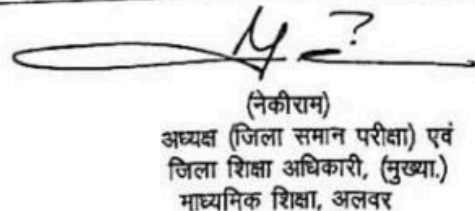 (नेकीराम)
अध्यक्ष (जिला समान परीक्षा) एवं
जिला शिक्षा अधिकारी, (मुख्या.)
माध्यमिक शिक्षा, अलवर